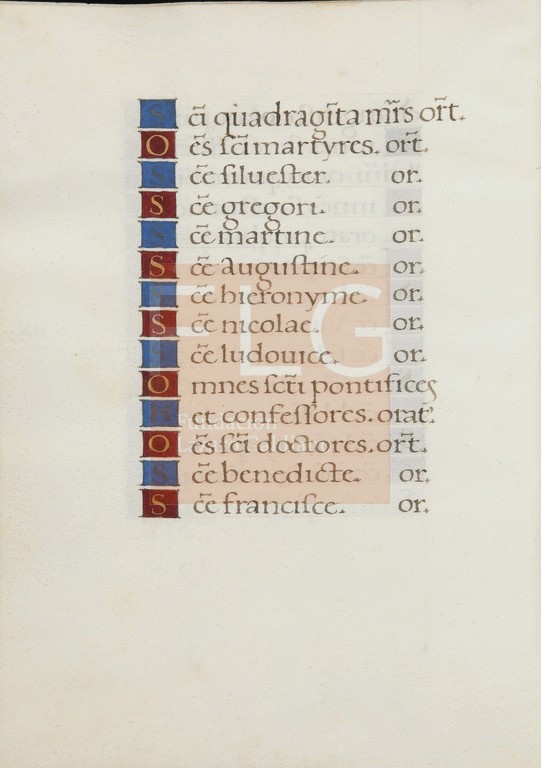 Sc̄i quadragīta mr̄s or̄t.
Oēs sc̄i martyres. or̄t.
Sc̄e siluester. or.
Sc̄e gregori. or.
Sc̄e martine. or.
Sc̄e augustine. or.
Sc̄e hieronyme. or.
Sc̄e nicolae. or.
Sc̄e ludouice. or.
Omnes sc̄ti pontifices
et confessores. orat̄.
Oēs sc̄i doctores. or̄t.
Sc̄e benedicte. or.
Sc̄e francisce. or.
FLG
Fundación